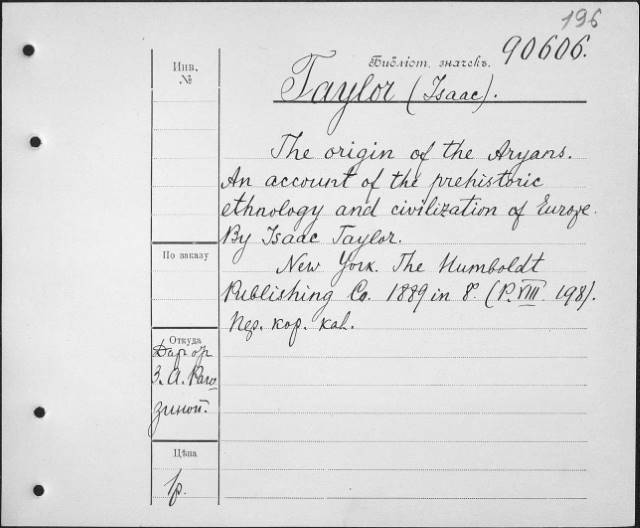 196
Инв.
№
Библіот. значекъ.
90606.
Taylor (Isaac).
The origin of the Aryans.
An account of the prehistoric
ethnology and civilization of Europe.
By Isaac Taylor.
New York. The Humboldt
Publishing Co. 1889 in 8º. (P. VIII. 198).
Пер. кор. каl.
По заказу
Откуда
Дар от
З. А. Раго
зиной.
Цѣна
1р.